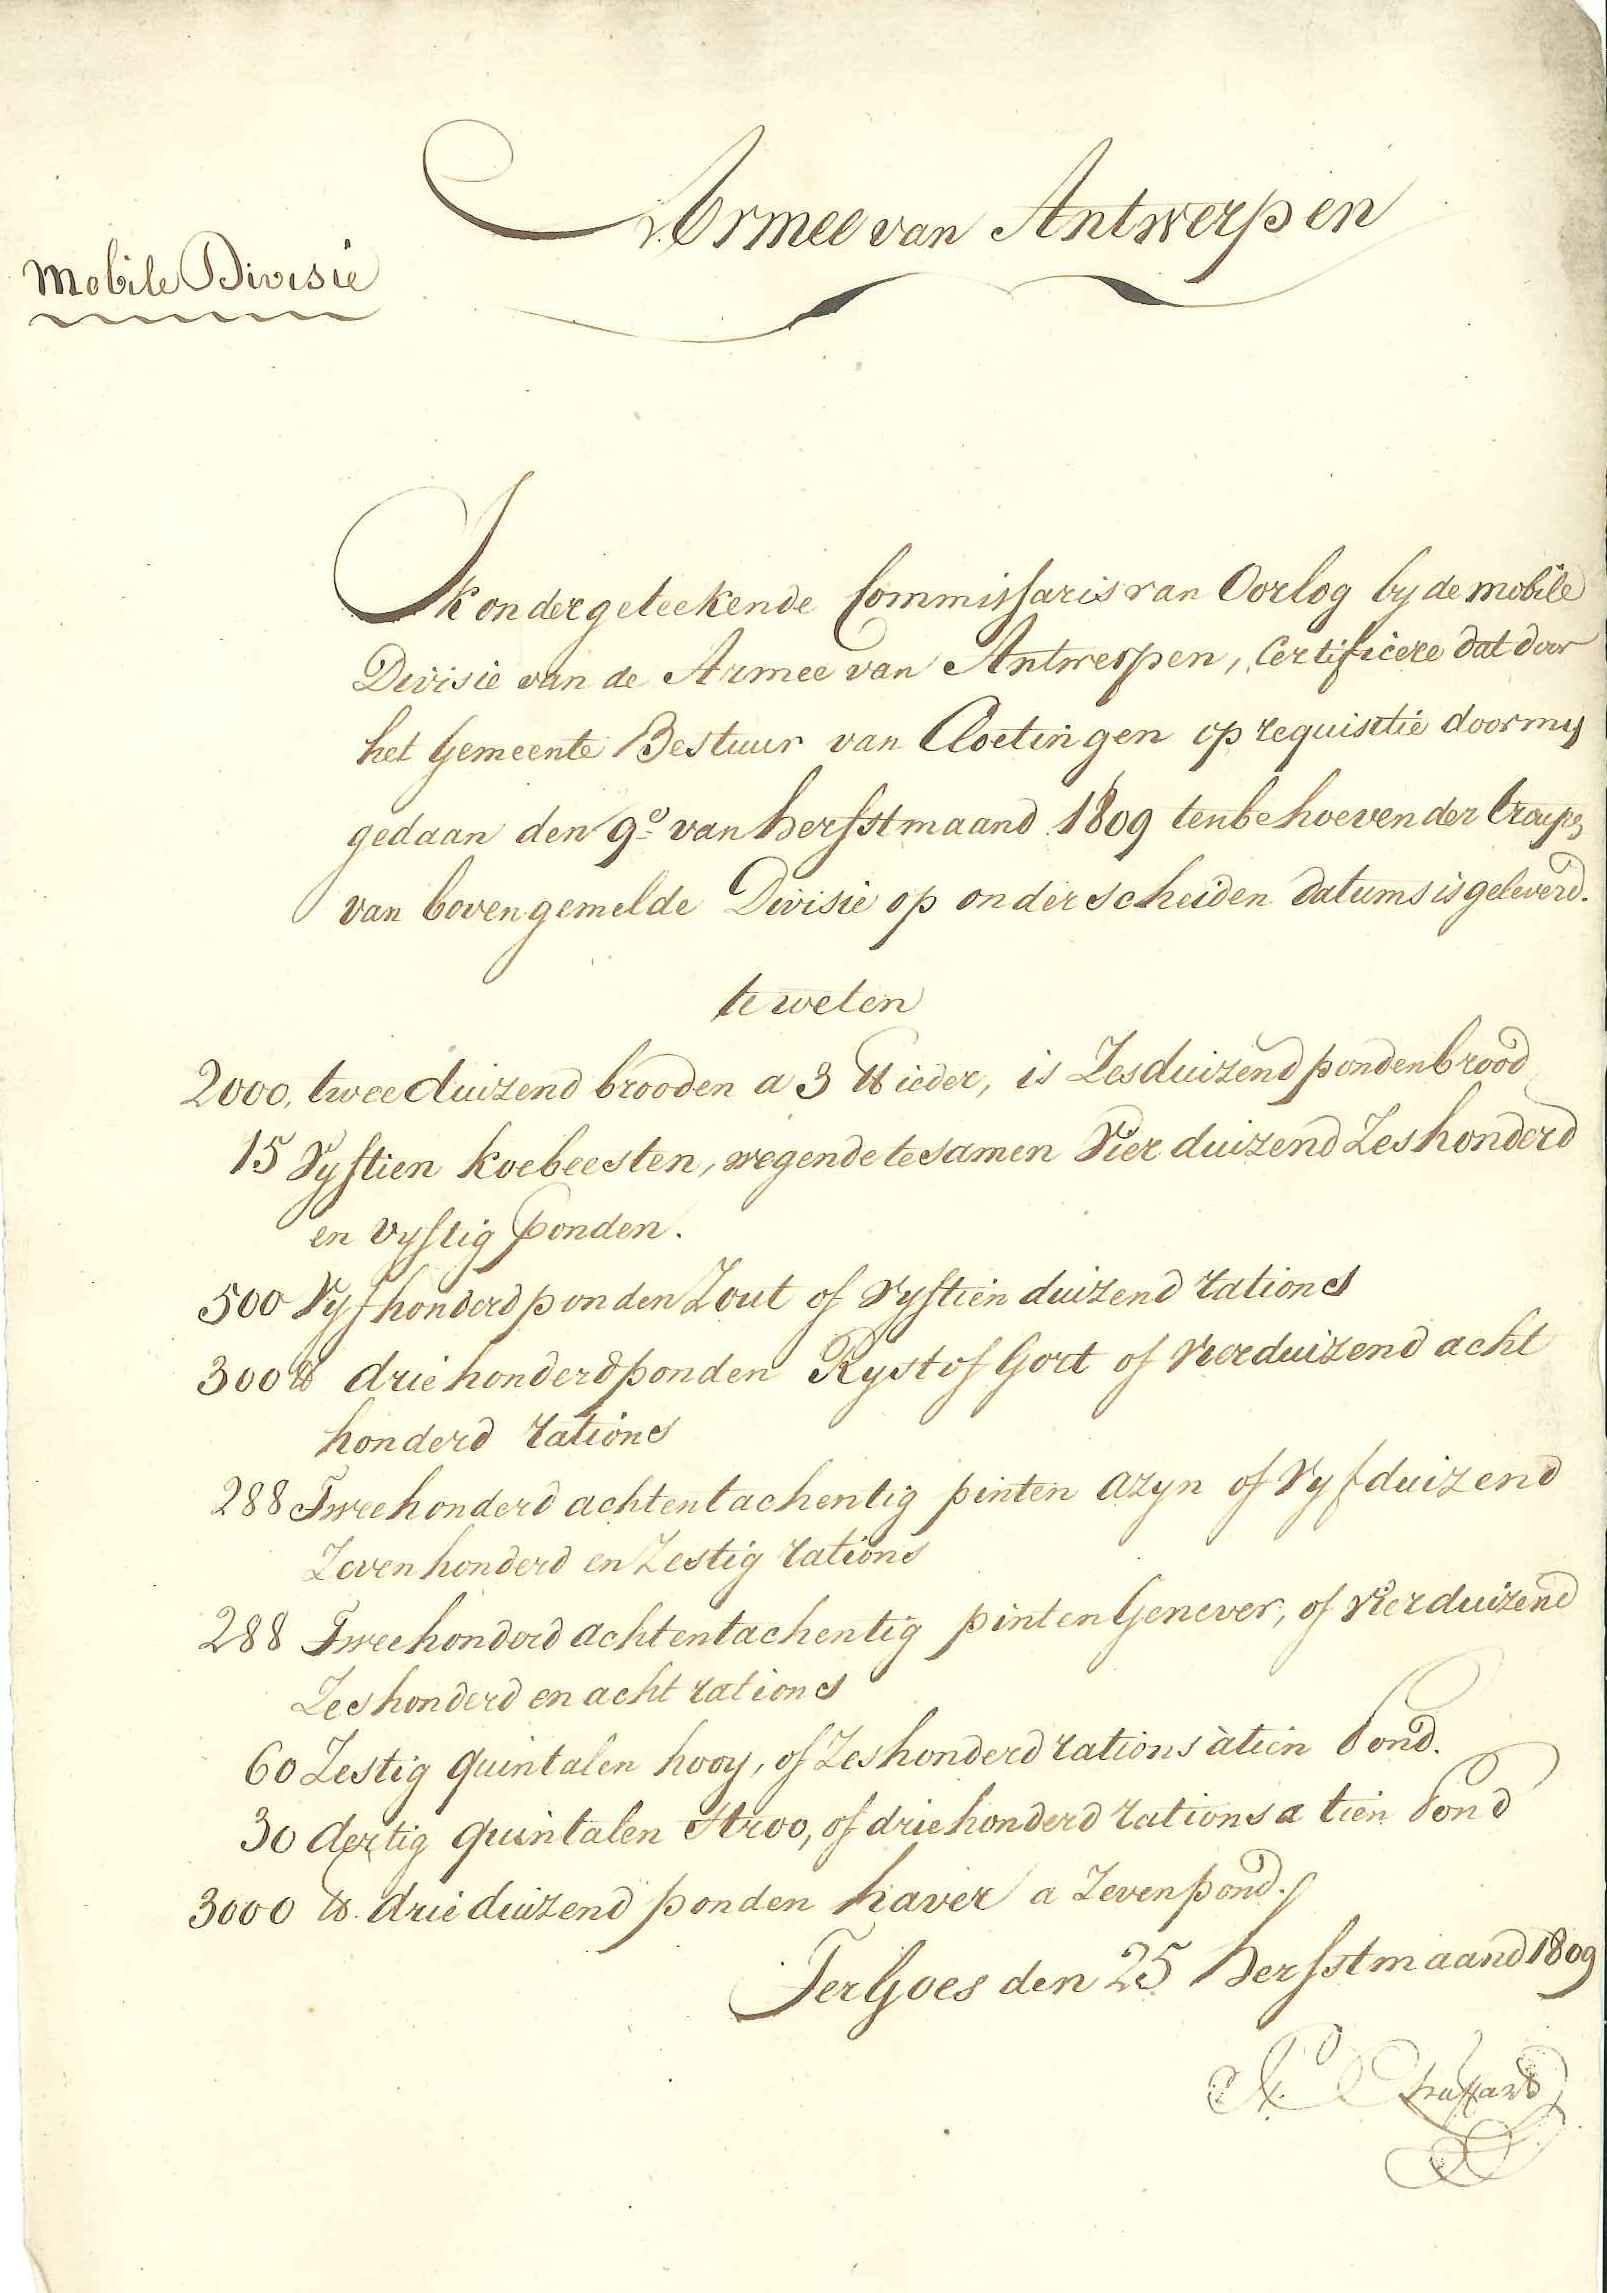 Armee van Antwerpen
Mobile Divisie
Ik ondergeteekende Commissaris van Oorlog by de mobile
Divisie van de Armee van Antwerpen, Certificere dat door
het Gemeente Bestuur van Cloetingen op requisitie door my
gedaan den 9e van herfstmaand 1809 ten behoeven der troupes
van bovengemelde Divisie op onderscheiden datums is geleverd.
te weten
2000, twee duizend brooden a 3 ℔ ieder, is Zesduizend ponden brood
15 Vyftien koebeesten, wegende te samen Vier duizend Zeshonderd
en vyftig ponden.
500 Vyfhonderd ponden Zout of Vyftien duizend rations
300 ℔ driehonderd ponden Ryst of Gort of Vierduizend acht
honderd rations
288 Tweehonderd achtentachentig pinten azyn of Vyfduizend
Zevenhonderd en Zestig rations
288 Tweehonderd achtentachentig pinten Genever, of Vierduizend
Zeshonderd en acht rations
60 Zestig quintalen hooy, of Zeshonderd rations à tien Pond.
30 dertig quintalen Stroo, of driehonderd rations a tien Pond
3000 ℔. drie duizend ponden haver a Zeven pond.
TerGoes den 25 Herfstmaand 1809